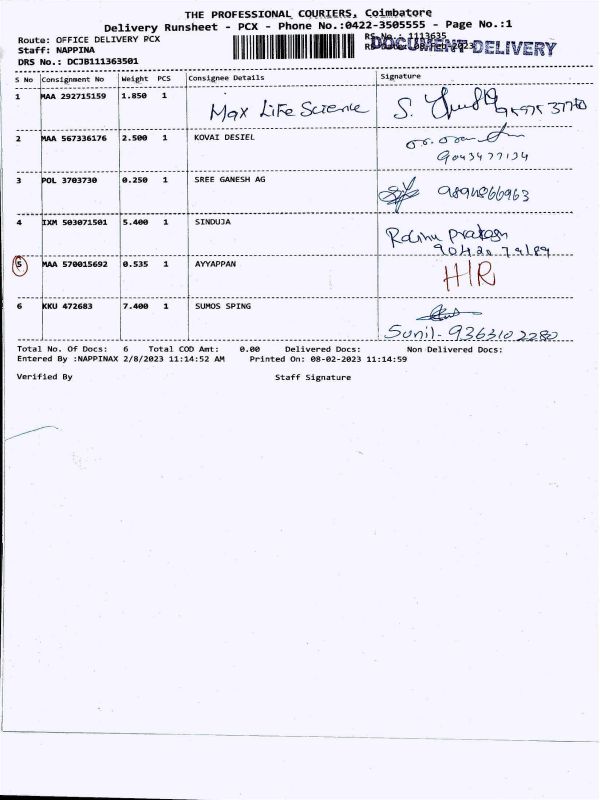 THE PROFESSIONAL COURIERS, Coimbatore
Delivery Runsheet - PCX - Phone No.:0422-3505555 - Page No.:1
Route: OFFICE DELIVERY PCX
RS No.: 1113635
Staff: NAPPINA
DOCUMENT DELIVERY
DRS No.: DCJB111363501
S No Consignment No Weight PCS Consignee Details Signature
1 MAA 292715159 1.850 1 Max Life Science S.
2 MAA 567336176 2.500 1 KOVAI DESIEL
9043477134
3 POL 3703730 0.250 1 SREE GANESH AG 9894866963
4 IXM 503071501 5.400 1 SINDUJA
5 MAA 570015692 0.535 1 AYYAPPAN HR
6 KKU 472683 7.400 1 SUMOS SPING
Sunil- 9363102280
Total No. Of Docs: 6 Total COD Amt: 0.00 Delivered Docs: Non Delivered Docs:
Entered By :NAPPINAX 2/8/2023 11:14:52 AM Printed On: 08-02-2023 11:14:59
Verified By Staff Signature